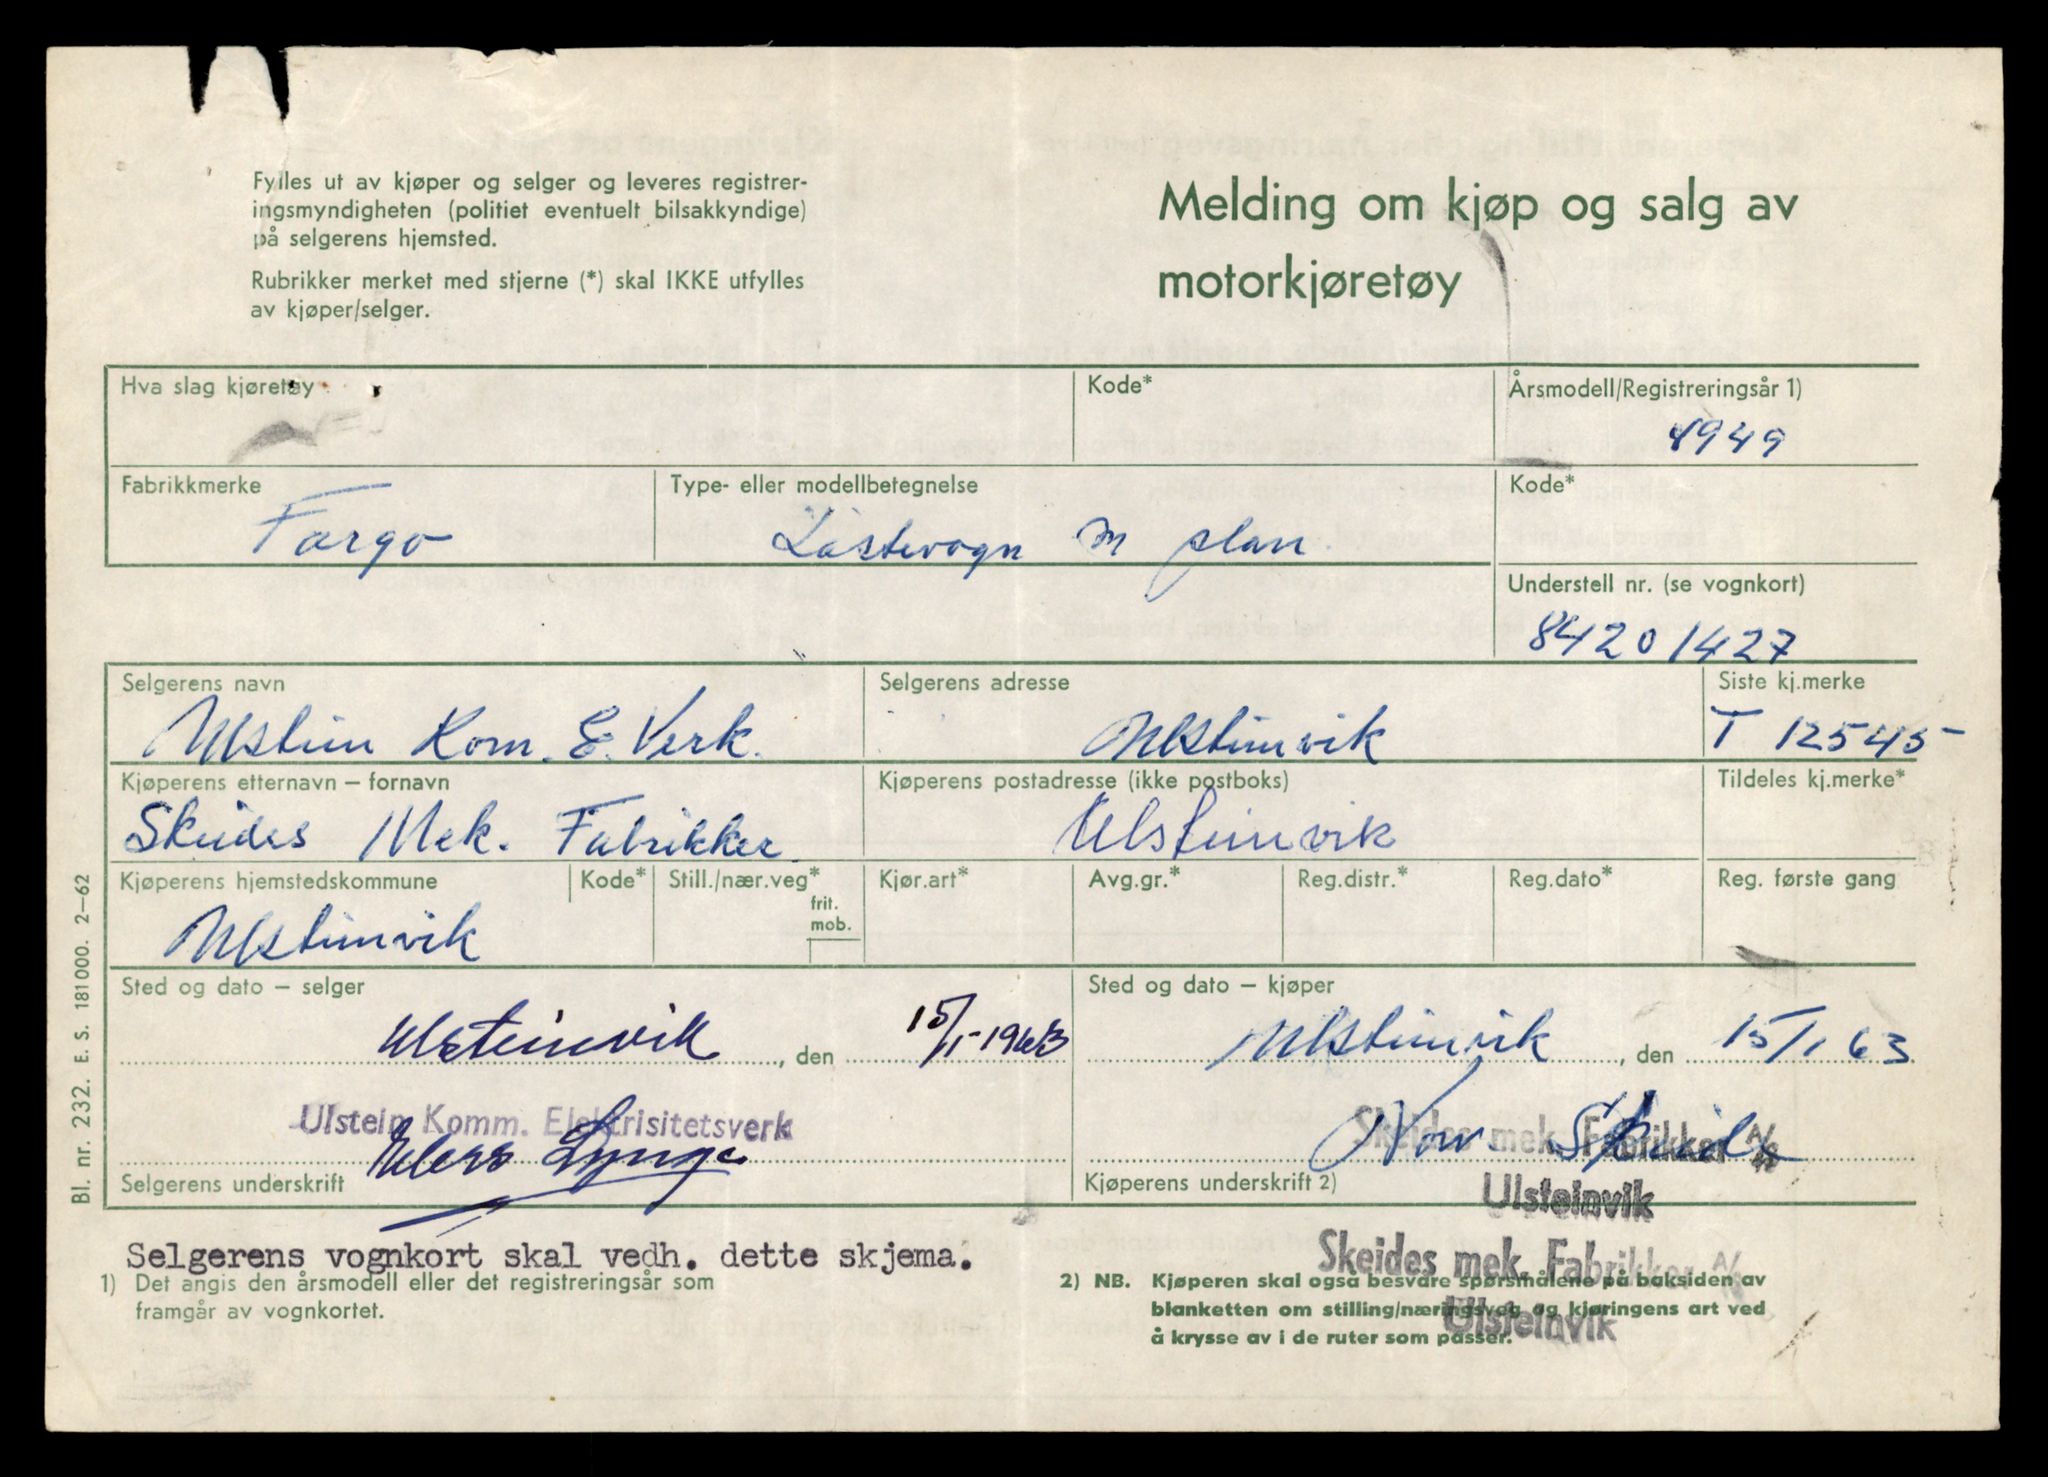 Fylles ut av kjøper og selger og leveres registrer-
ingsmyndigheten (politiet eventuelt bilsakkyndige)
på selgerens hjemsted.
Rubrikker merket med stjerne (*) skal IKKE utfylles
av kjøper/selger.
Melding om kjøp og salg av
motorkjøretøy
Hva slag kjøretøy
Kode*
Årsmodell/Registreringsår 1)
1949
Fabrikkmerke
Fargo
Type- eller modellbetegnelse
Lastevogn m plan
Kode*
Understell nr. (se vognkort)
84201427
Selgerens navn
Ulstein Kom. E. Verk.
Selgerens adresse
Ulsteinvik
Siste kj.merke
T 12545
Kjøperens etternavn – fornavn
Skeides Mek. Fabrikker
Kjøperens postadresse (ikke postboks)
Ulsteinvik
Tildeles kj.merke*
Kjøperens hjemstedskommune
Ulsteinvik
Kode*
Still./nær.veg*
frit.
mob.
Kjør.art*
Avg.gr.*
Reg.distr.*
Reg.dato*
Reg. første gang
Sted og dato – selger
Ulsteinvik, den 15/1-1963
Sted og dato – kjøper
Ulsteinvik, den 15/1 63
Ulstein Komm. Elektrisitetsverk
Lynge
Selgerens underskrift
Skeides mek. Fabrikker A/S
Ulsteinvik
Skeide
Kjøperens underskrift 2)
Skeides mek. Fabrikker A/S
Ulsteinvik
Selgerens vognkort skal vedh. dette skjema.
1) Det angis den årsmodell eller det registreringsår som
framgår av vognkortet.
2) NB. Kjøperen skal også besvare spørsmålene på baksiden av
blanketten om stilling/næringsveg og kjøringens art ved
å krysse av i de ruter som passer.
Bl. nr. 232. E. S. 181000. 2–62